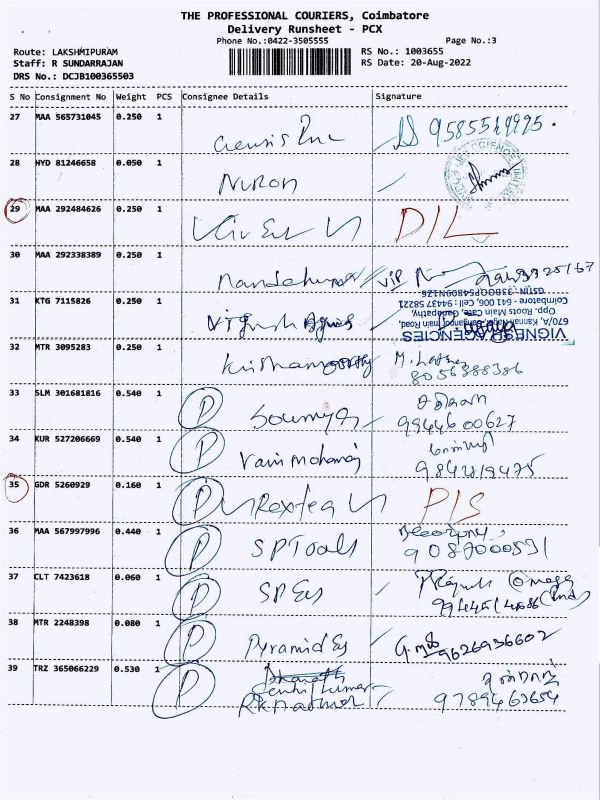 THE PROFESSIONAL COURIERS, Coimbatore
Delivery Runsheet - PCX
Phone No.:0422-3505555 Page No.:3
Route: LAKSHMIPURAM RS No.: 1003655
Staff: R SUNDARRAJAN RS Date: 20-Aug-2022
DRS No.: DCJB100365503
S No Consignment No Weight PCS Consignee Details Signature
27 MAA 565731045 0.250 1
28 HYD 81246658 0.050 1 Nuron
29 MAA 292484626 0.250 1 DIL
30 MAA 292338389 0.250 1
31 KTG 7115826 0.250 1 Vignesh Agencies
VIGNESH AGENCIES
670/A, Kannan Nagar, Sanganoor main Road,
Opp. Roots Main Gate, Ganapathy,
Coimbatore - 641 006, Cell : 94437 58221
32 MTR 3095283 0.250 1 Krishnamoorthy
8056388386
33 SLM 301681816 0.540 1 P Soumya
9944600627
34 KUR 527206669 0.540 1 P Vani mohanaj
35 GDR 5260929 0.160 1 P Rextea PIS
36 MAA 567997996 0.440 1 P SP Tools
9087000531
37 CLT 7423618 0.060 1 P SP Es
38 MTR 2248398 0.080 1 P Pyramid Es 9626936602
39 TRZ 365066229 0.530 1 P Bharath
Senthil kumar
9789463654